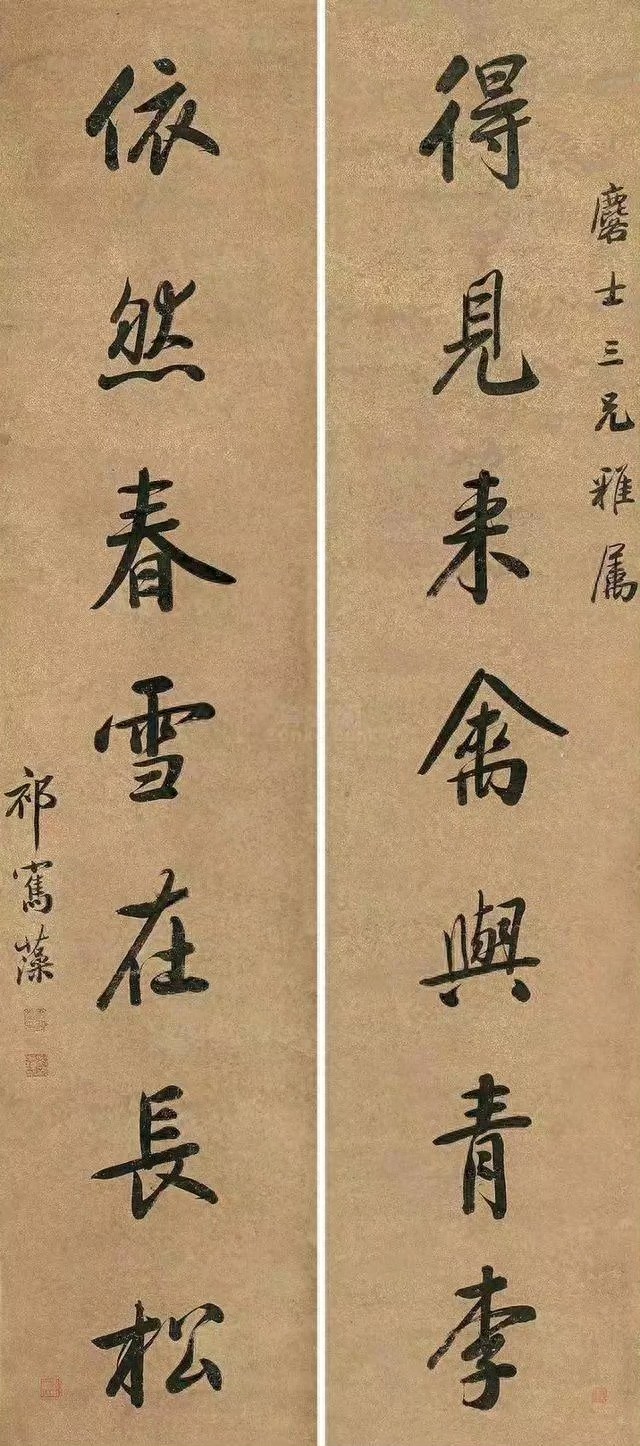 麐士三兄雅属
得見来禽與青李
依然春雪在長松
祁寯藻